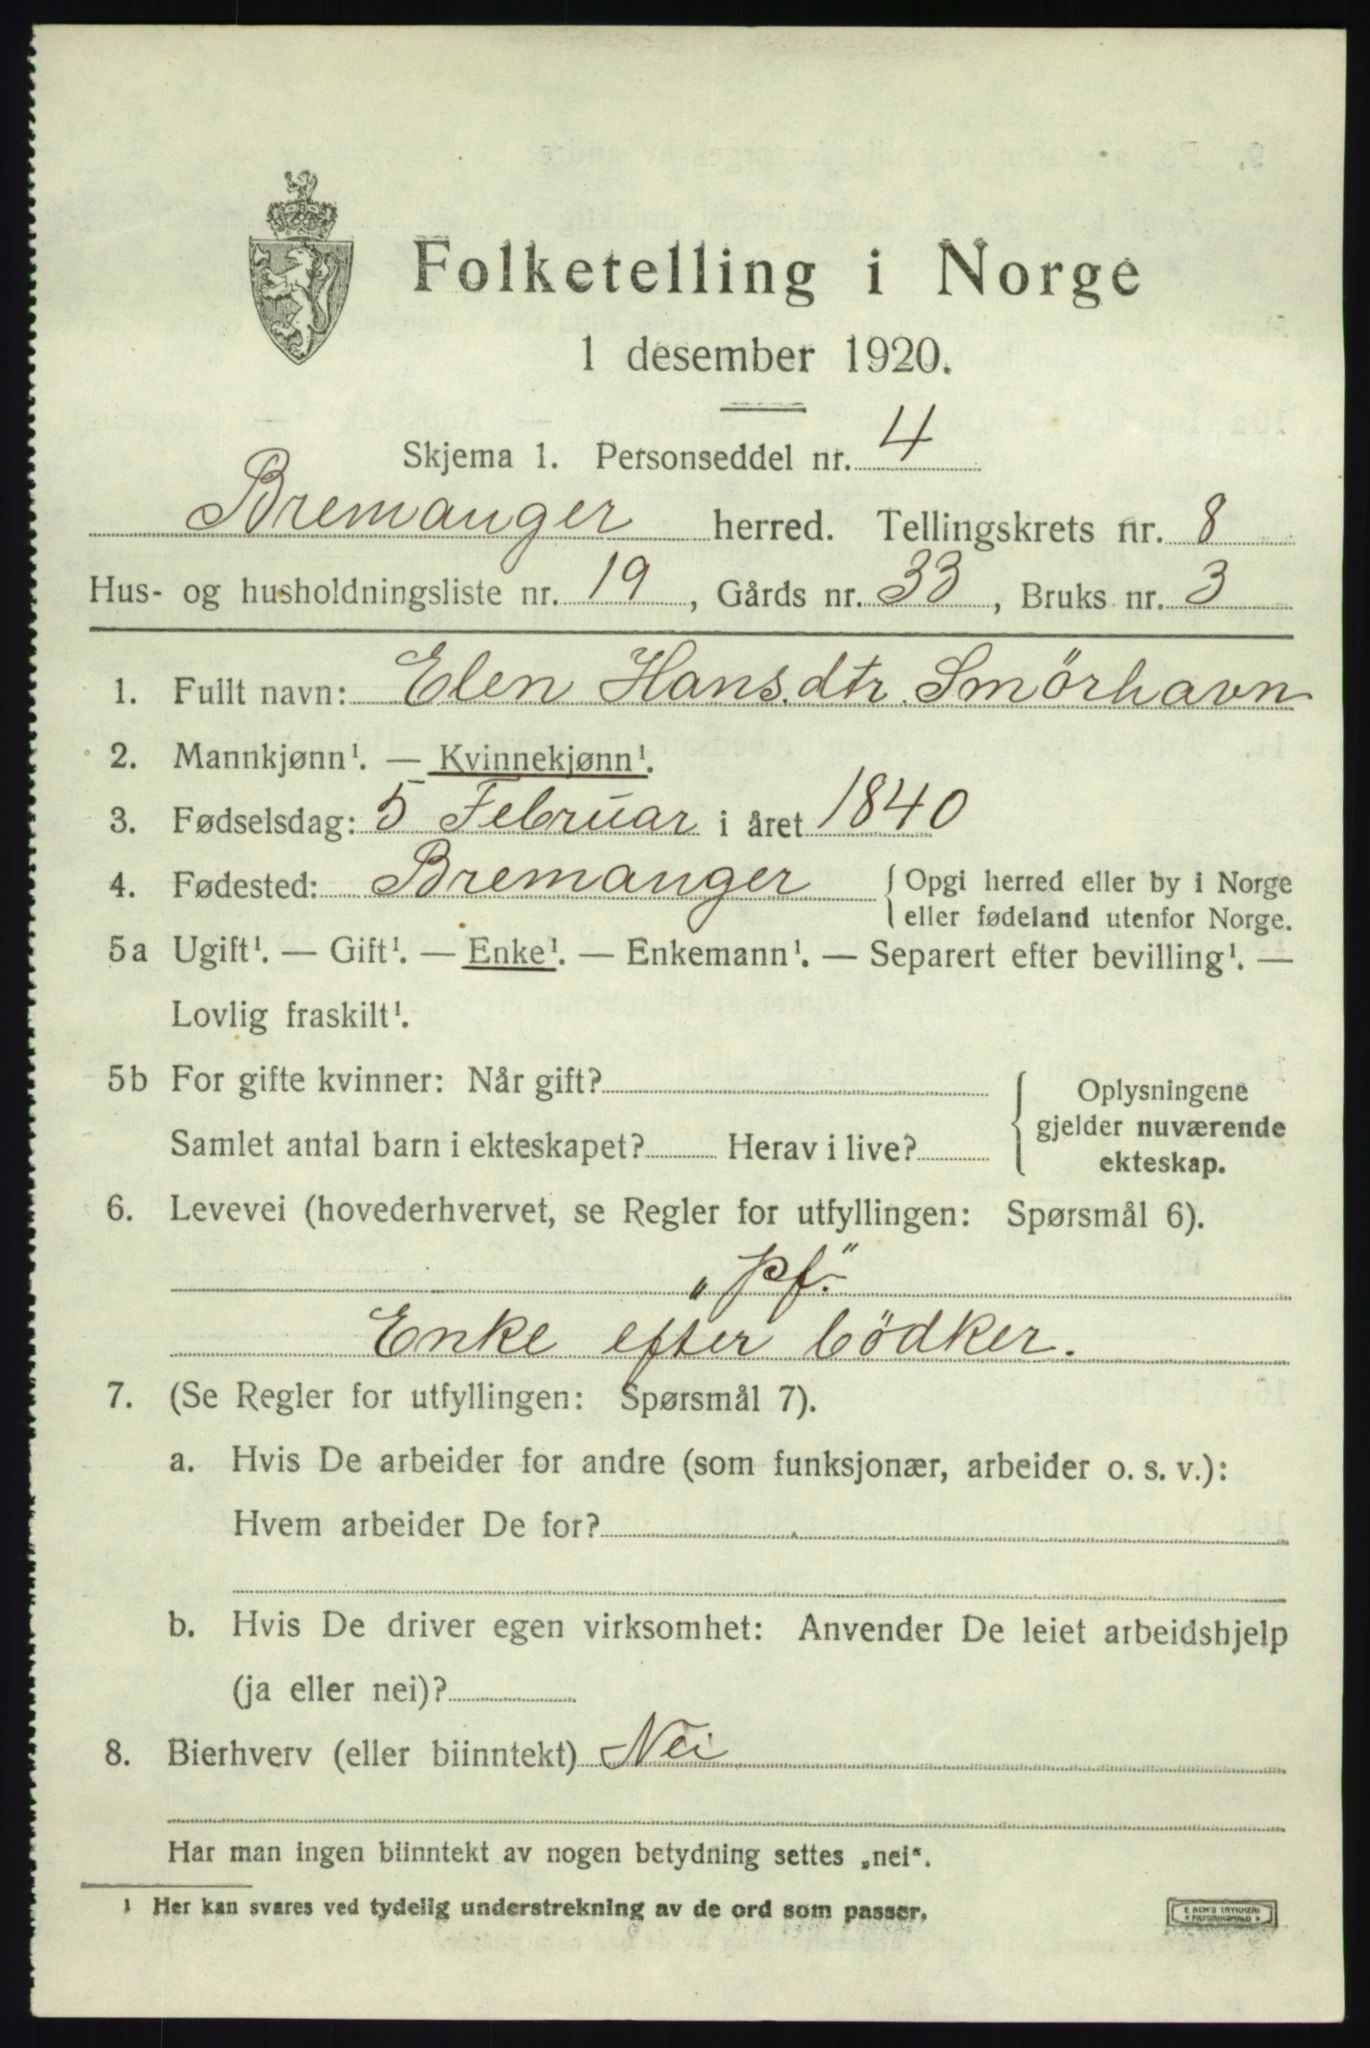 Folketelling i Norge
1 desember 1920.
Skjema 1. Personseddel nr. 4
Bremanger herred. Tellingskrets nr. 8
Hus- og husholdningsliste nr. 19, Gårds nr. 33, Bruks nr. 3
1. Fullt navn: Elen Hans.dtr. Smörhavn
2. Mannkjønn¹. — Kvinnekjønn¹.
3. Fødselsdag: 5 Februar i året 1840
4. Fødested: Bremanger { Opgi herred eller by i Norge
eller fødeland utenfor Norge.
5a Ugift¹. — Gift¹. — Enke¹. — Enkemann¹. — Separert efter bevilling¹. —
Lovlig fraskilt¹.
5b For gifte kvinner: Når gift?
Samlet antal barn i ekteskapet? Herav i live?
{ Oplysningene
gjelder nuværende
ekteskap.
6. Levevei (hovederhvervet, se Regler for utfyllingen: Spørsmål 6).
„pf."
Enke efter bödker.
7. (Se Regler for utfyllingen: Spørsmål 7).
a. Hvis De arbeider for andre (som funksjonær, arbeider o. s. v.):
Hvem arbeider De for?
b. Hvis De driver egen virksomhet: Anvender De leiet arbeidshjelp
(ja eller nei)?
8. Bierhverv (eller biinntekt) Nei
Har man ingen biinntekt av nogen betydning settes „nei“.
¹ Her kan svares ved tydelig understrekning av de ord som passer.